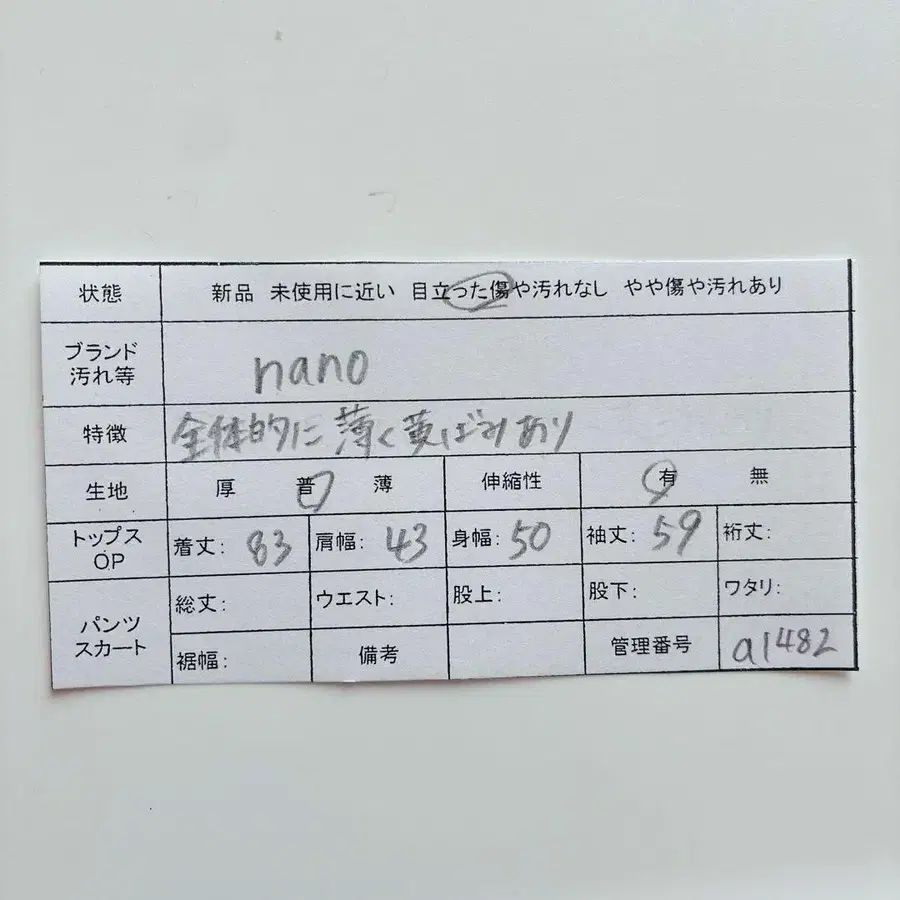 状態 新品 未使用に近い 目立った傷や汚れなし やや傷や汚れあり
ブランド
汚れ等
nano
特徴 全体的に薄く黄ばみあり
生地 厚 普 薄 伸縮性 有 無
トップス
OP
着丈: 83 肩幅: 43 身幅: 50 袖丈: 59 裄丈:
パンツ
スカート
総丈: ウエスト: 股上: 股下: ワタリ:
裾幅: 備考 管理番号 a1482